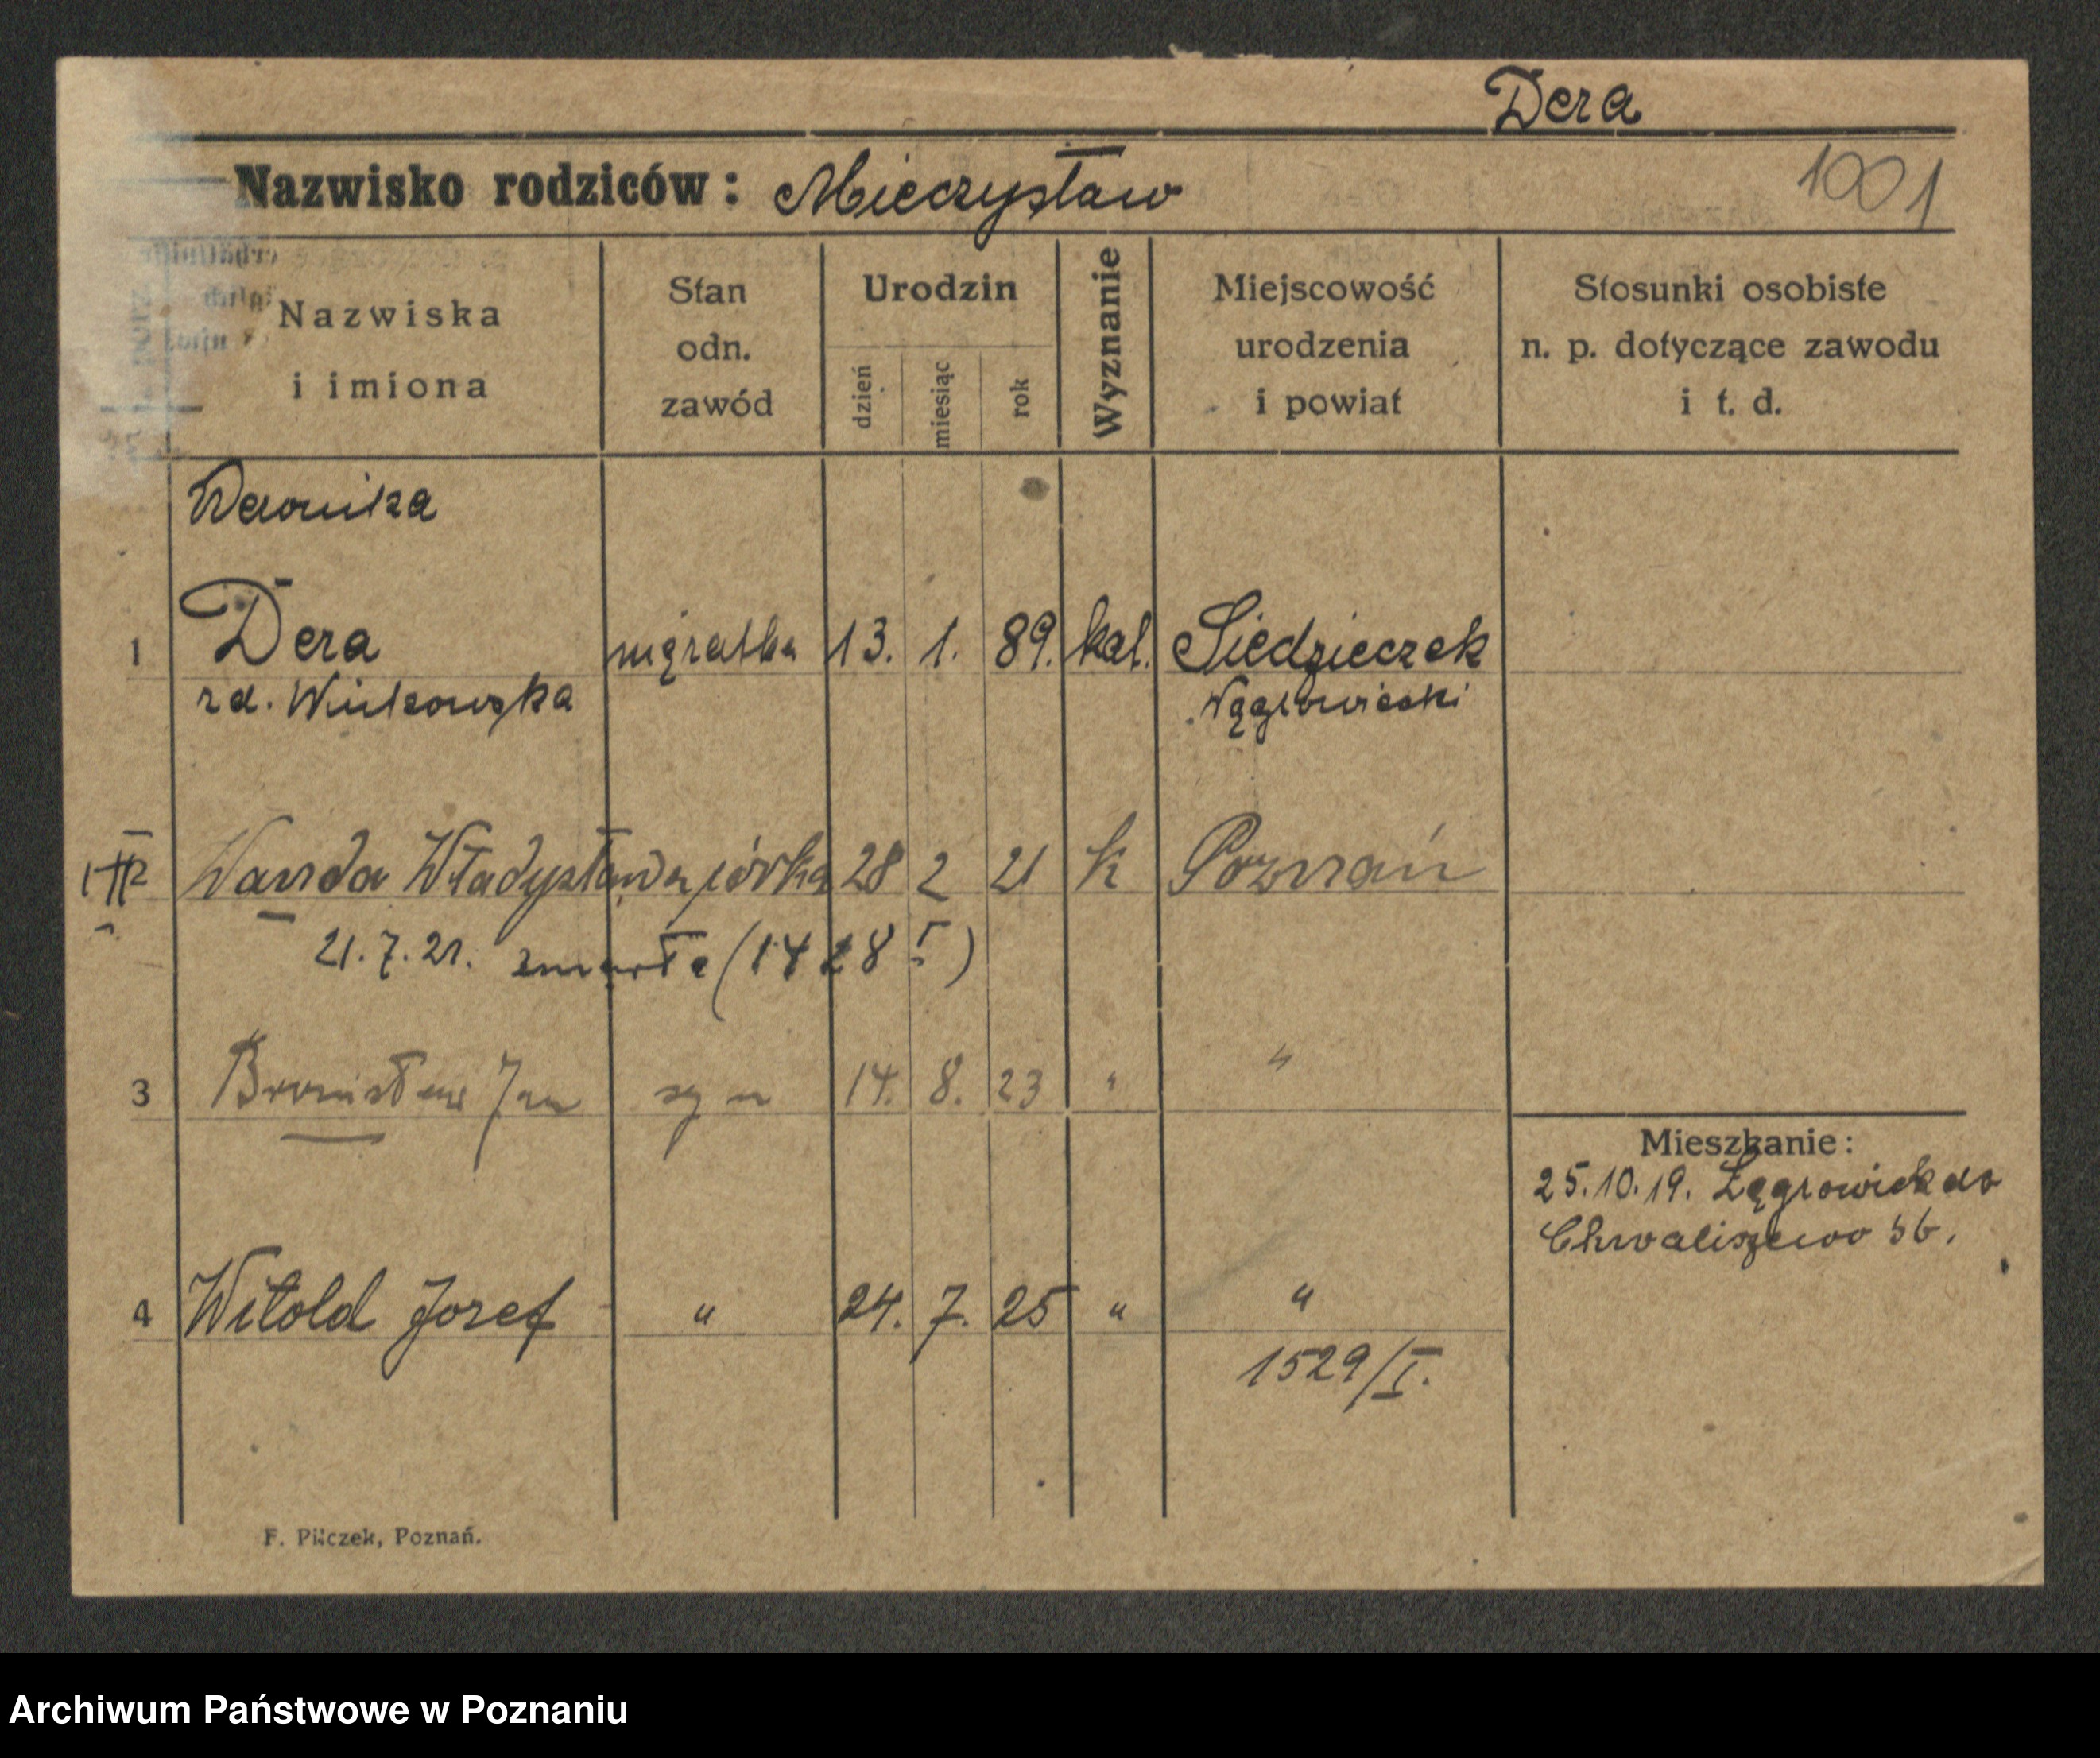 Dera
Nazwisko rodziców: Mieczysław
1001
Nazwiska i imiona
Stan odn. zawód
Urodzin
dzień
miesiąc
rok
Wyznanie
Miejscowość urodzenia i powiat
Stosunki osobiste n. p. dotyczące zawodu i t. d.
Weronika
1 Dera mężatka 13. 1. 89. kat. Siedzieczek
rd. Winkowska Wągrowiecki
Wanda Władysława córka 28 2 21 k Poznań
21.7.21. zmarła (1428 I)
3 Bronisław Jan syn 14. 8. 23 " "
Mieszkanie:
25.10.19. do
Chwaliszewo 56.
4 Witold Jozef " 24. 7. 25 " "
1529/I.
F. Pilczek, Poznań.
Archiwum Państwowe w Poznaniu